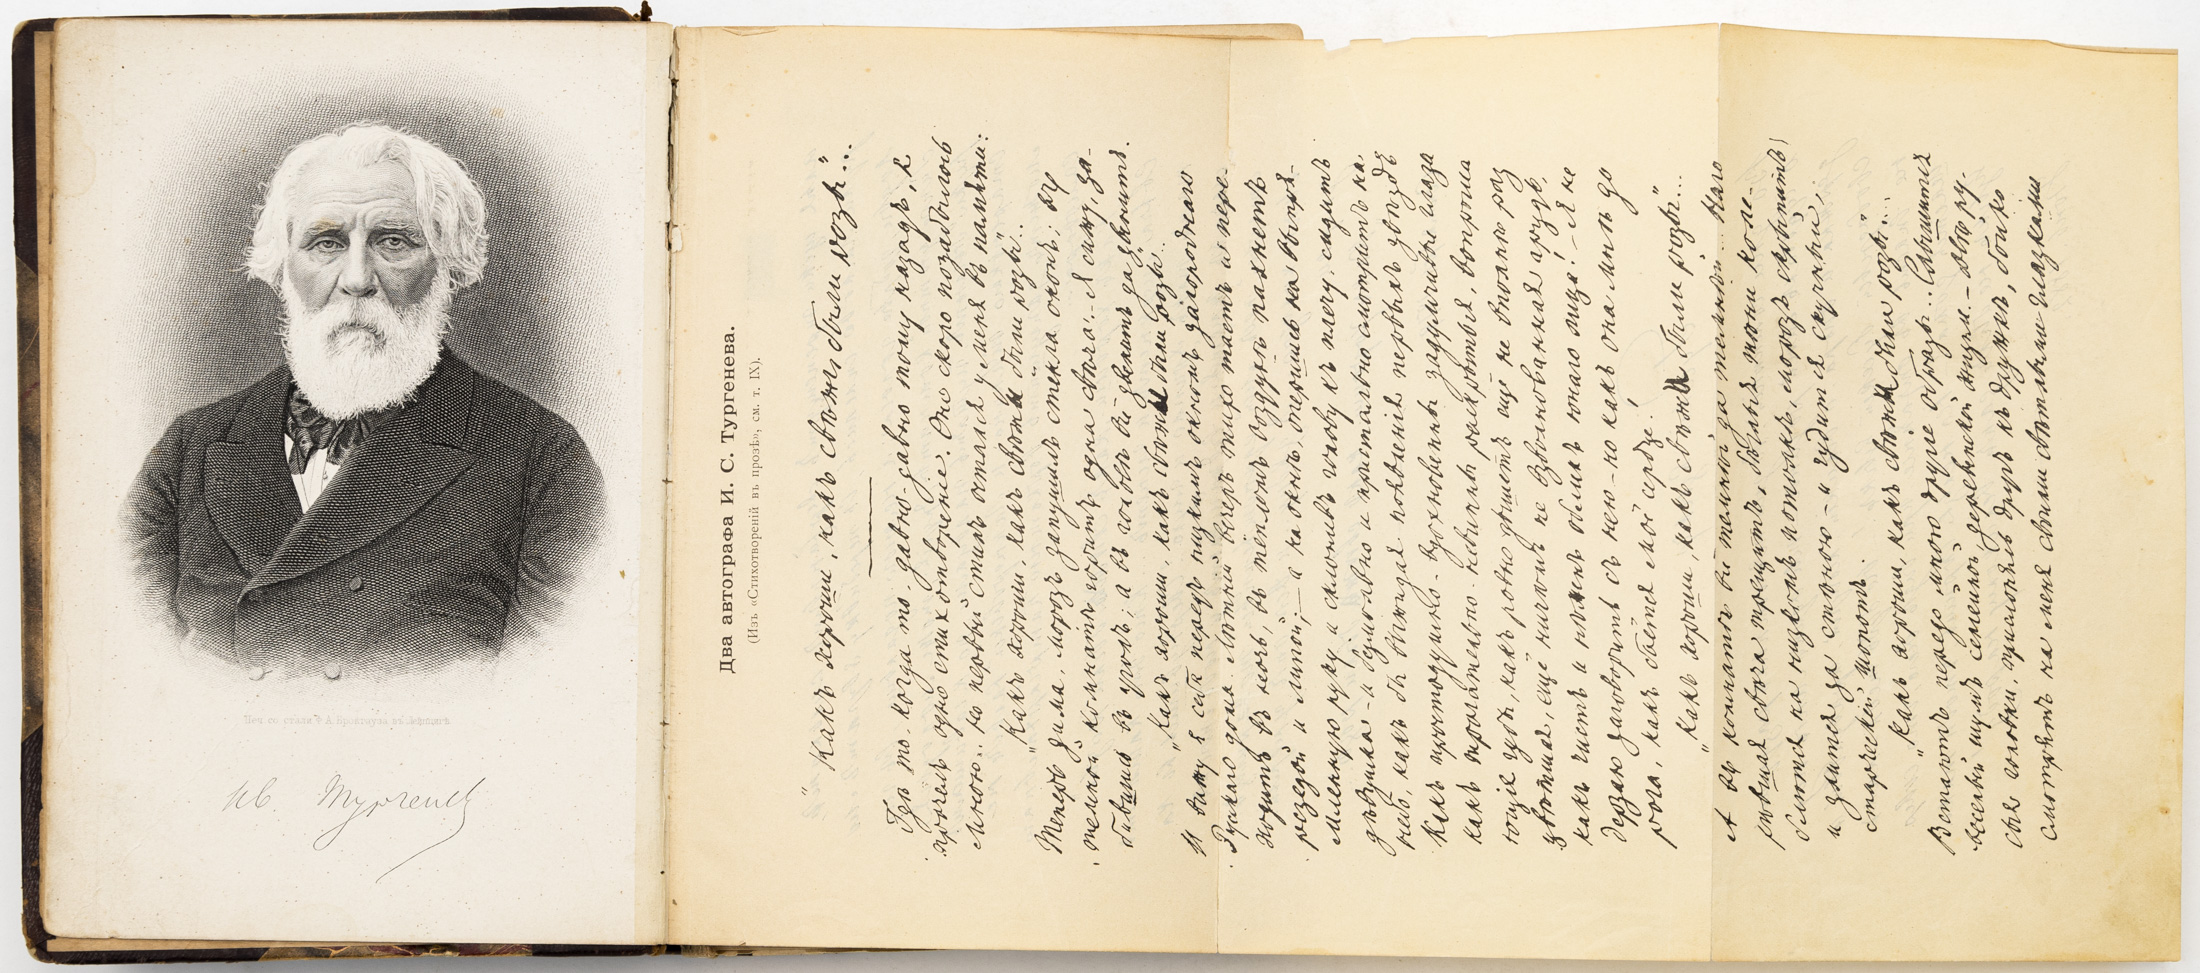 Печ. со стали Ф. А. Брокгауза въ Лейпцигѣ
Ив. Тургеневъ
Два автографа И. С. Тургенева.
(Изъ «Стихотвореній въ прозѣ», см. т. IX).
„Какъ хороши, какъ свѣжи были розы“...
Гдѣ то, когда то, давно-давно тому назадъ, я
прочелъ одно стихотвореніе. Оно скоро позабылось
мною.. но первый стихъ остался у меня въ памяти:
„Какъ хороши, какъ свѣжи были розы“..
Теперь зима; морозъ запушилъ стекла оконъ; въ
темной комнатѣ горитъ одна свѣча. Я сижу, за-
бившись въ уголъ; а въ головѣ всё звенитъ да звенитъ:
„Какъ хороши, какъ свѣжи были розы“...
И вижу я себя передъ низкимъ окномъ загороднаго
Русскаго дома. Лѣтній вечеръ тихо таетъ и пере-
ходитъ въ ночь, въ тёпломъ воздухѣ пахнетъ
резедой и липой; — а на окнѣ, опершись на выпря-
мленную руку и склонивъ голову къ плечу, сидитъ
дѣвушка — и безмолвно и пристально смотритъ на
небо, какъ бы выжидая появленія первыхъ звѣздъ.
Какъ простодушно-вдохновенны задумчивые глаза,
какъ трогательно-невинны раскрытыя, вопроша-
ющія губы, какъ ровно дышетъ ещё не вполнѣ рас-
цвѣтшая, ещё ничѣмъ не взволнованная грудь,
какъ чистъ и нѣженъ обликъ юнаго лица! — Я не
дерзаю заговорить съ нею — но какъ она мнѣ до-
рога, какъ бьётся моё сердце!
„Какъ хороши, какъ свѣжи были розы“...
А въ комнатѣ всё темнѣй да темнѣй... Наго-
рѣвшая свѣча трещитъ, бѣглыя тѣни коле-
блются на низкомъ потолкѣ, морозъ скрыпитъ
и злится за стѣною — и чудится скучный,
старческій шопотъ.
„Какъ хороши, какъ свѣжи были розы“...
Встаютъ передо мною другіе образы.. Слышится
весёлый шумъ семейной, деревенской жизни. — Двѣ ру-
сыя головки, прислонясь другъ къ дружкѣ, бойко
смотрятъ на меня своими свѣтлыми глазками